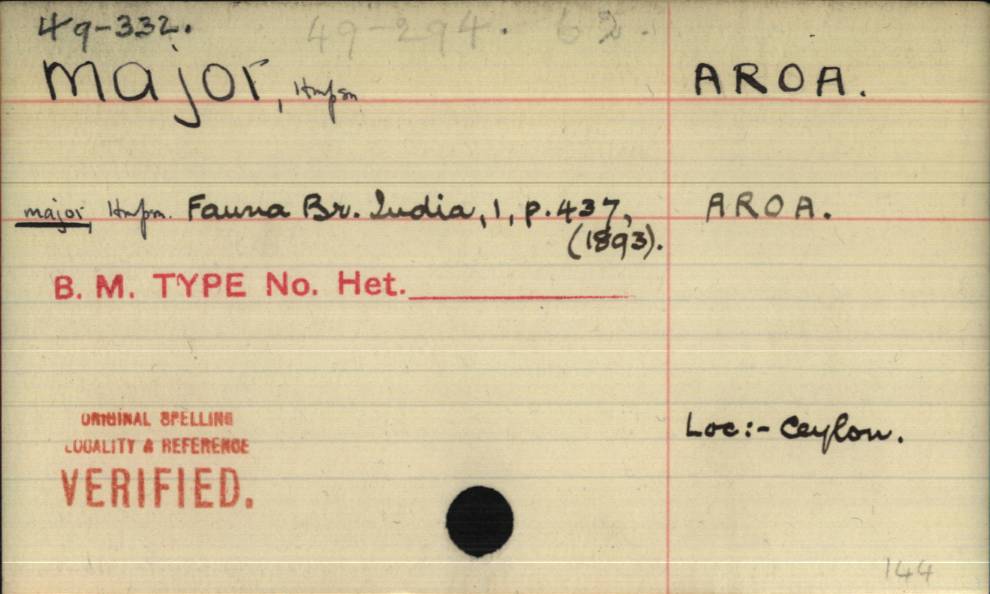 49-332. 49-294. 62.
major, Hmpsn AROA.
major, Hmpsn. Fauna Br. India, 1, p. 437, AROA.
(1893).
B. M. TYPE No. Het.
ORIGINAL SPELLING
LOCALITY & REFERENCE
VERIFIED.
Loc:- Ceylon.
144